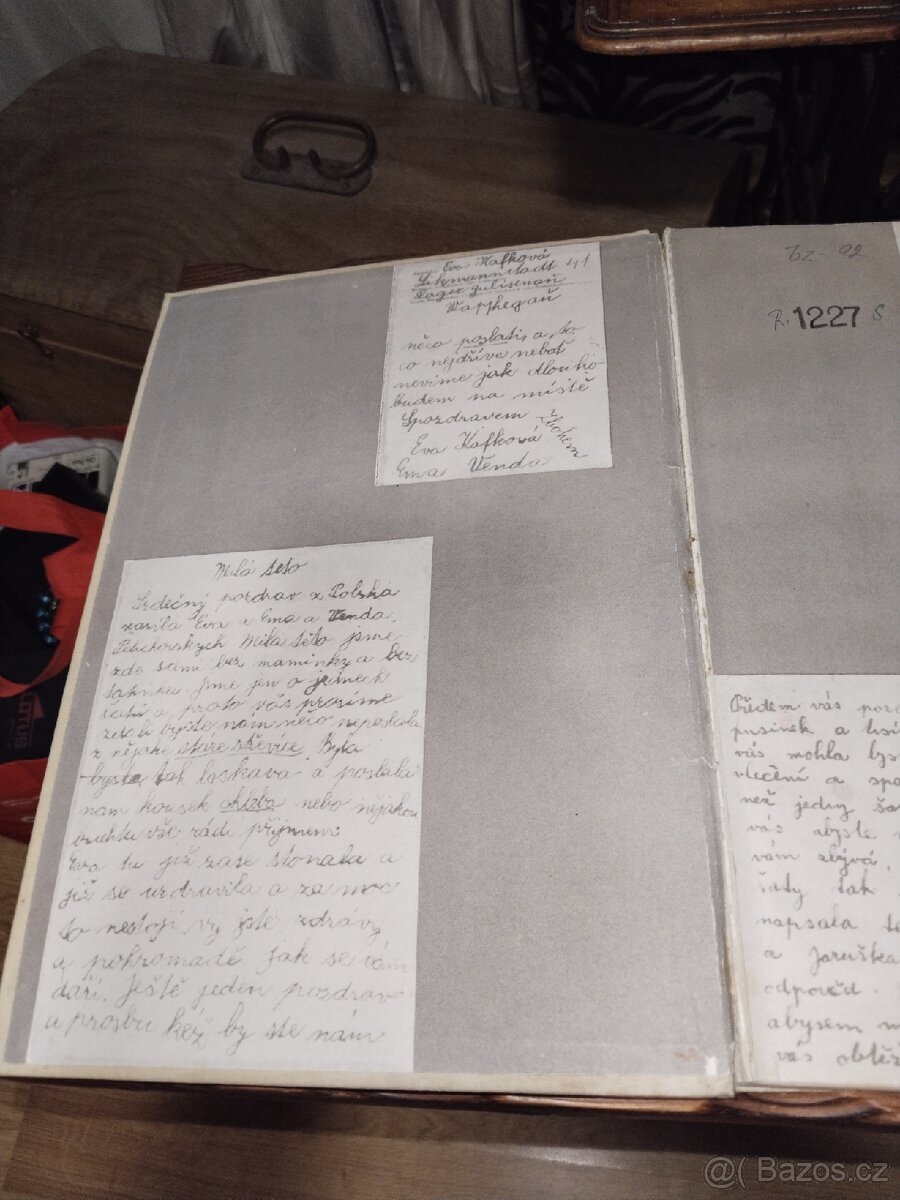 Eva Kafková
Litzmannstadt 41
Gulisenau
něco poslati, a to
co nejdříve neboť
nevíme jak dlouho
budem na místě
Spozdravem
Eva Kafková Zbohem
Ema Venda
Milá teto
Srdečný pozdrav z Polska
zasílá Eva a Ema a Venda.
Milá teto jsme
zde sami bez maminky a bez
tatínka jsme jen o jedněch
šatů a proto vás prosíme
zdali byste nám něco neposlala
z nějaké staré střevíce. Byla
byste tak laskava a poslala
nám kousek chleba nebo nějakou
vše rádi přijmem.
Eva tu již zase stonala a
již se uzdravila a za moc
to nestojí vy jste zdrávy
a pohromadě jak se vám
daří. Ještě jeden pozdrav
a prosbu kéž by ste nám
Tz-92
R. 1227 S
Předem vás
pusinek a
vás mohla
vlečení a
než jedny
vás abyste
vám zbývá.
šaty tak
napsala
a Jaruška
odpověd.
abysem
vás
LOTUS
@( Bazos.cz